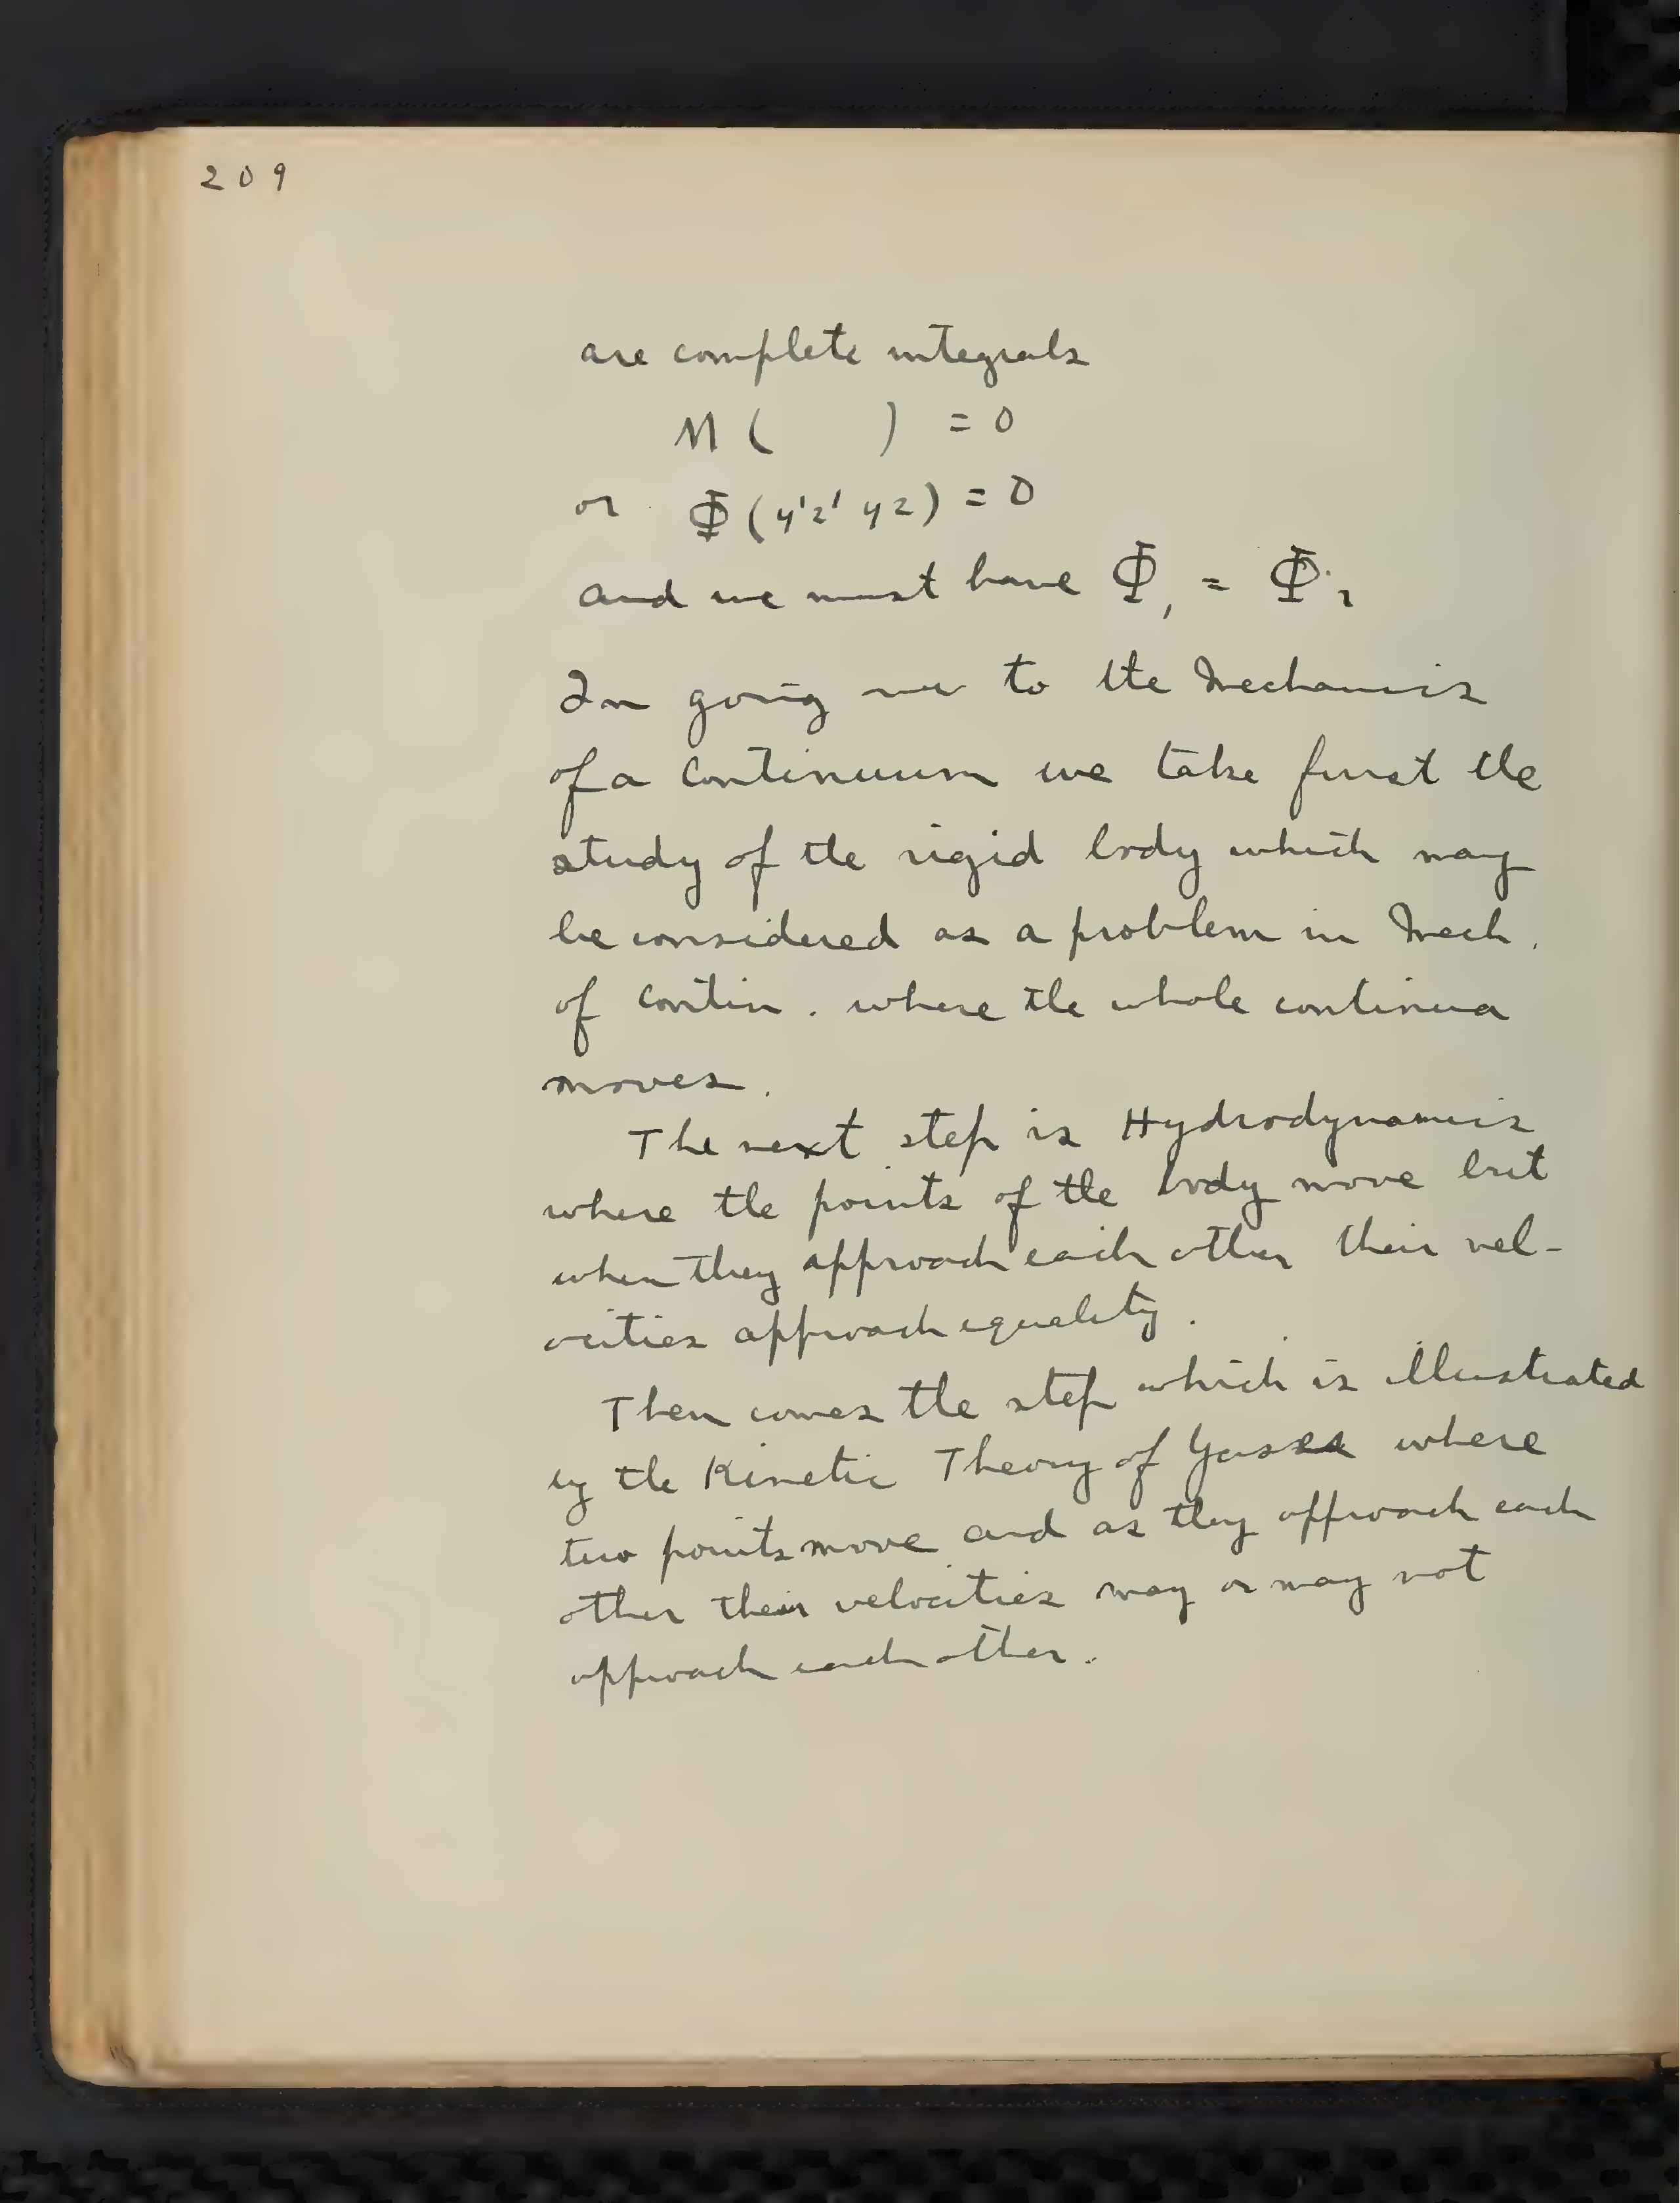 209
are complete integrals
M (     ) = 0
or Φ (y'z' yz) = 0
and we must have Φ₁ = Φ₂
In going over to the Mechanics
of a Continuum we take first the
study of the rigid body which may
be considered as a problem in Mech.
of Contin. where the whole continua
moves.
The next step is Hydrodynamics
where the points of the body move but
when they approach each other their vel-
ocities approach equality.
Then comes the step which is illustrated
by the Kinetic Theory of Gases where
two points move and as they approach each
other their velocities may or may not
approach each other.